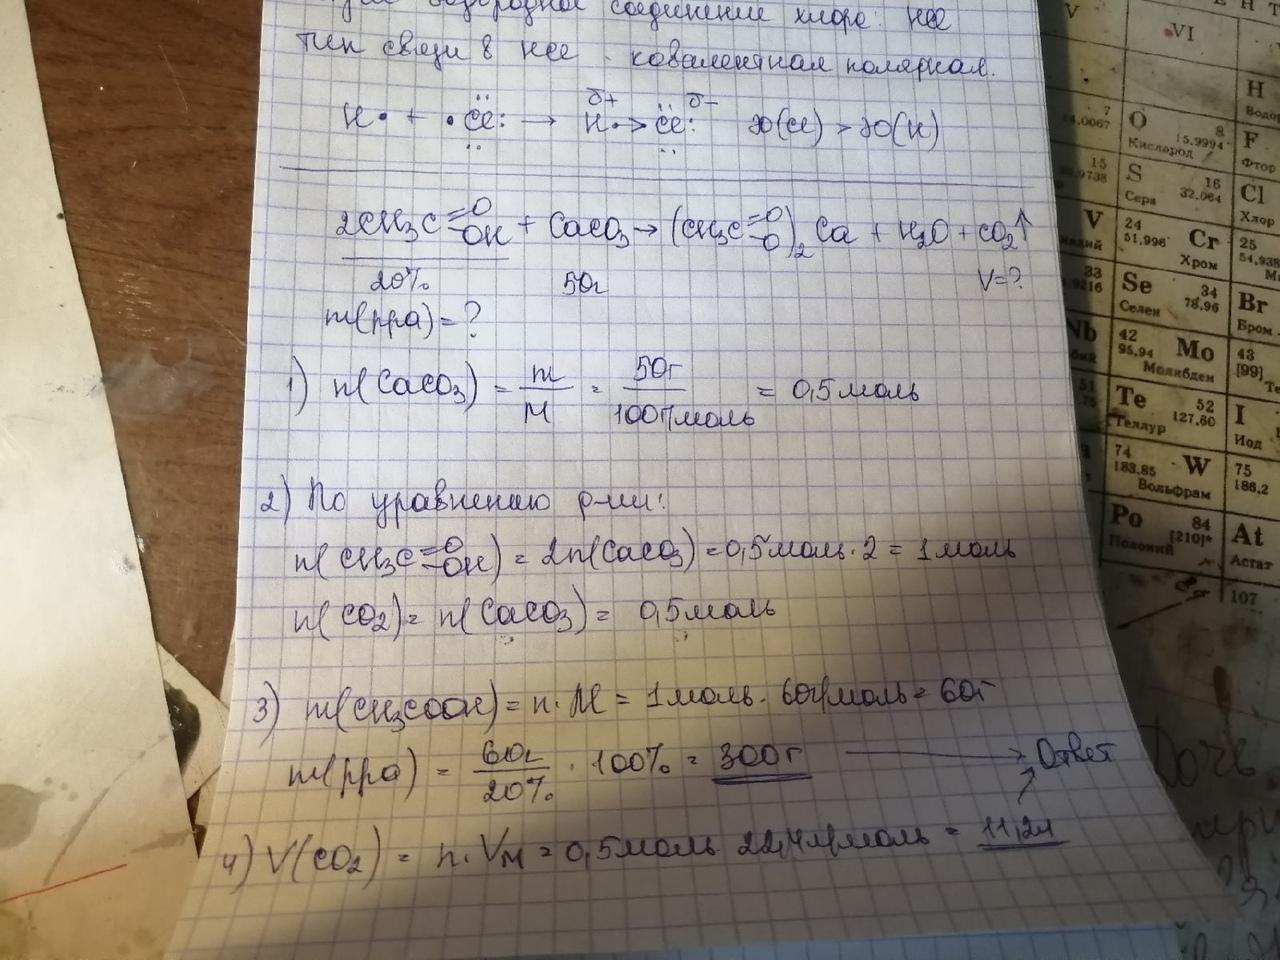 водородное соединение хлора: HCl
тип связи в HCl - ковалентная полярная.
H• + •Cl: → H•> Cl: ЭО(Cl) > ЭО(H)
δ+ δ-
2CH₃C=O-OH + CaCO₃ → (CH₃C=O-O)₂Ca + H₂O + CO₂↑
20% 50г V=?
m(рра) = ?
1) n(CaCO₃) = m/M = 50г/100г/моль = 0,5 моль
2) По уравнению р-ии:
n(CH₃C=O-OH) = 2n(CaCO₃) = 0,5 моль · 2 = 1 моль
n(CO₂) = n(CaCO₃) = 0,5 моль
3) m(CH₃COOH) = n · M = 1 моль · 60г/моль = 60г
m(рра) = 60г/20% · 100% = 300г → Ответ
4) V(CO₂) = n · Vм = 0,5 моль 22,4л/моль = 11,2л
V
VI
H
Водо
7
14.0067
O 8
15.9994
Кислород
F
Фтор
15
S 16
32.064
Сера
Cl
Хлор
V
24
51.996 Cr
Хром
25
54,938
33
Se 34
78.96
Селен
Br
Бром
Nb
42
95,94 Mo
Молибден
43
[99]
51
Te 52
127,60
Теллур
I
Иод
74
183,85 W
Вольфрам
75
186,2
Po 84
[210]*
Полоний
At
Астат
107